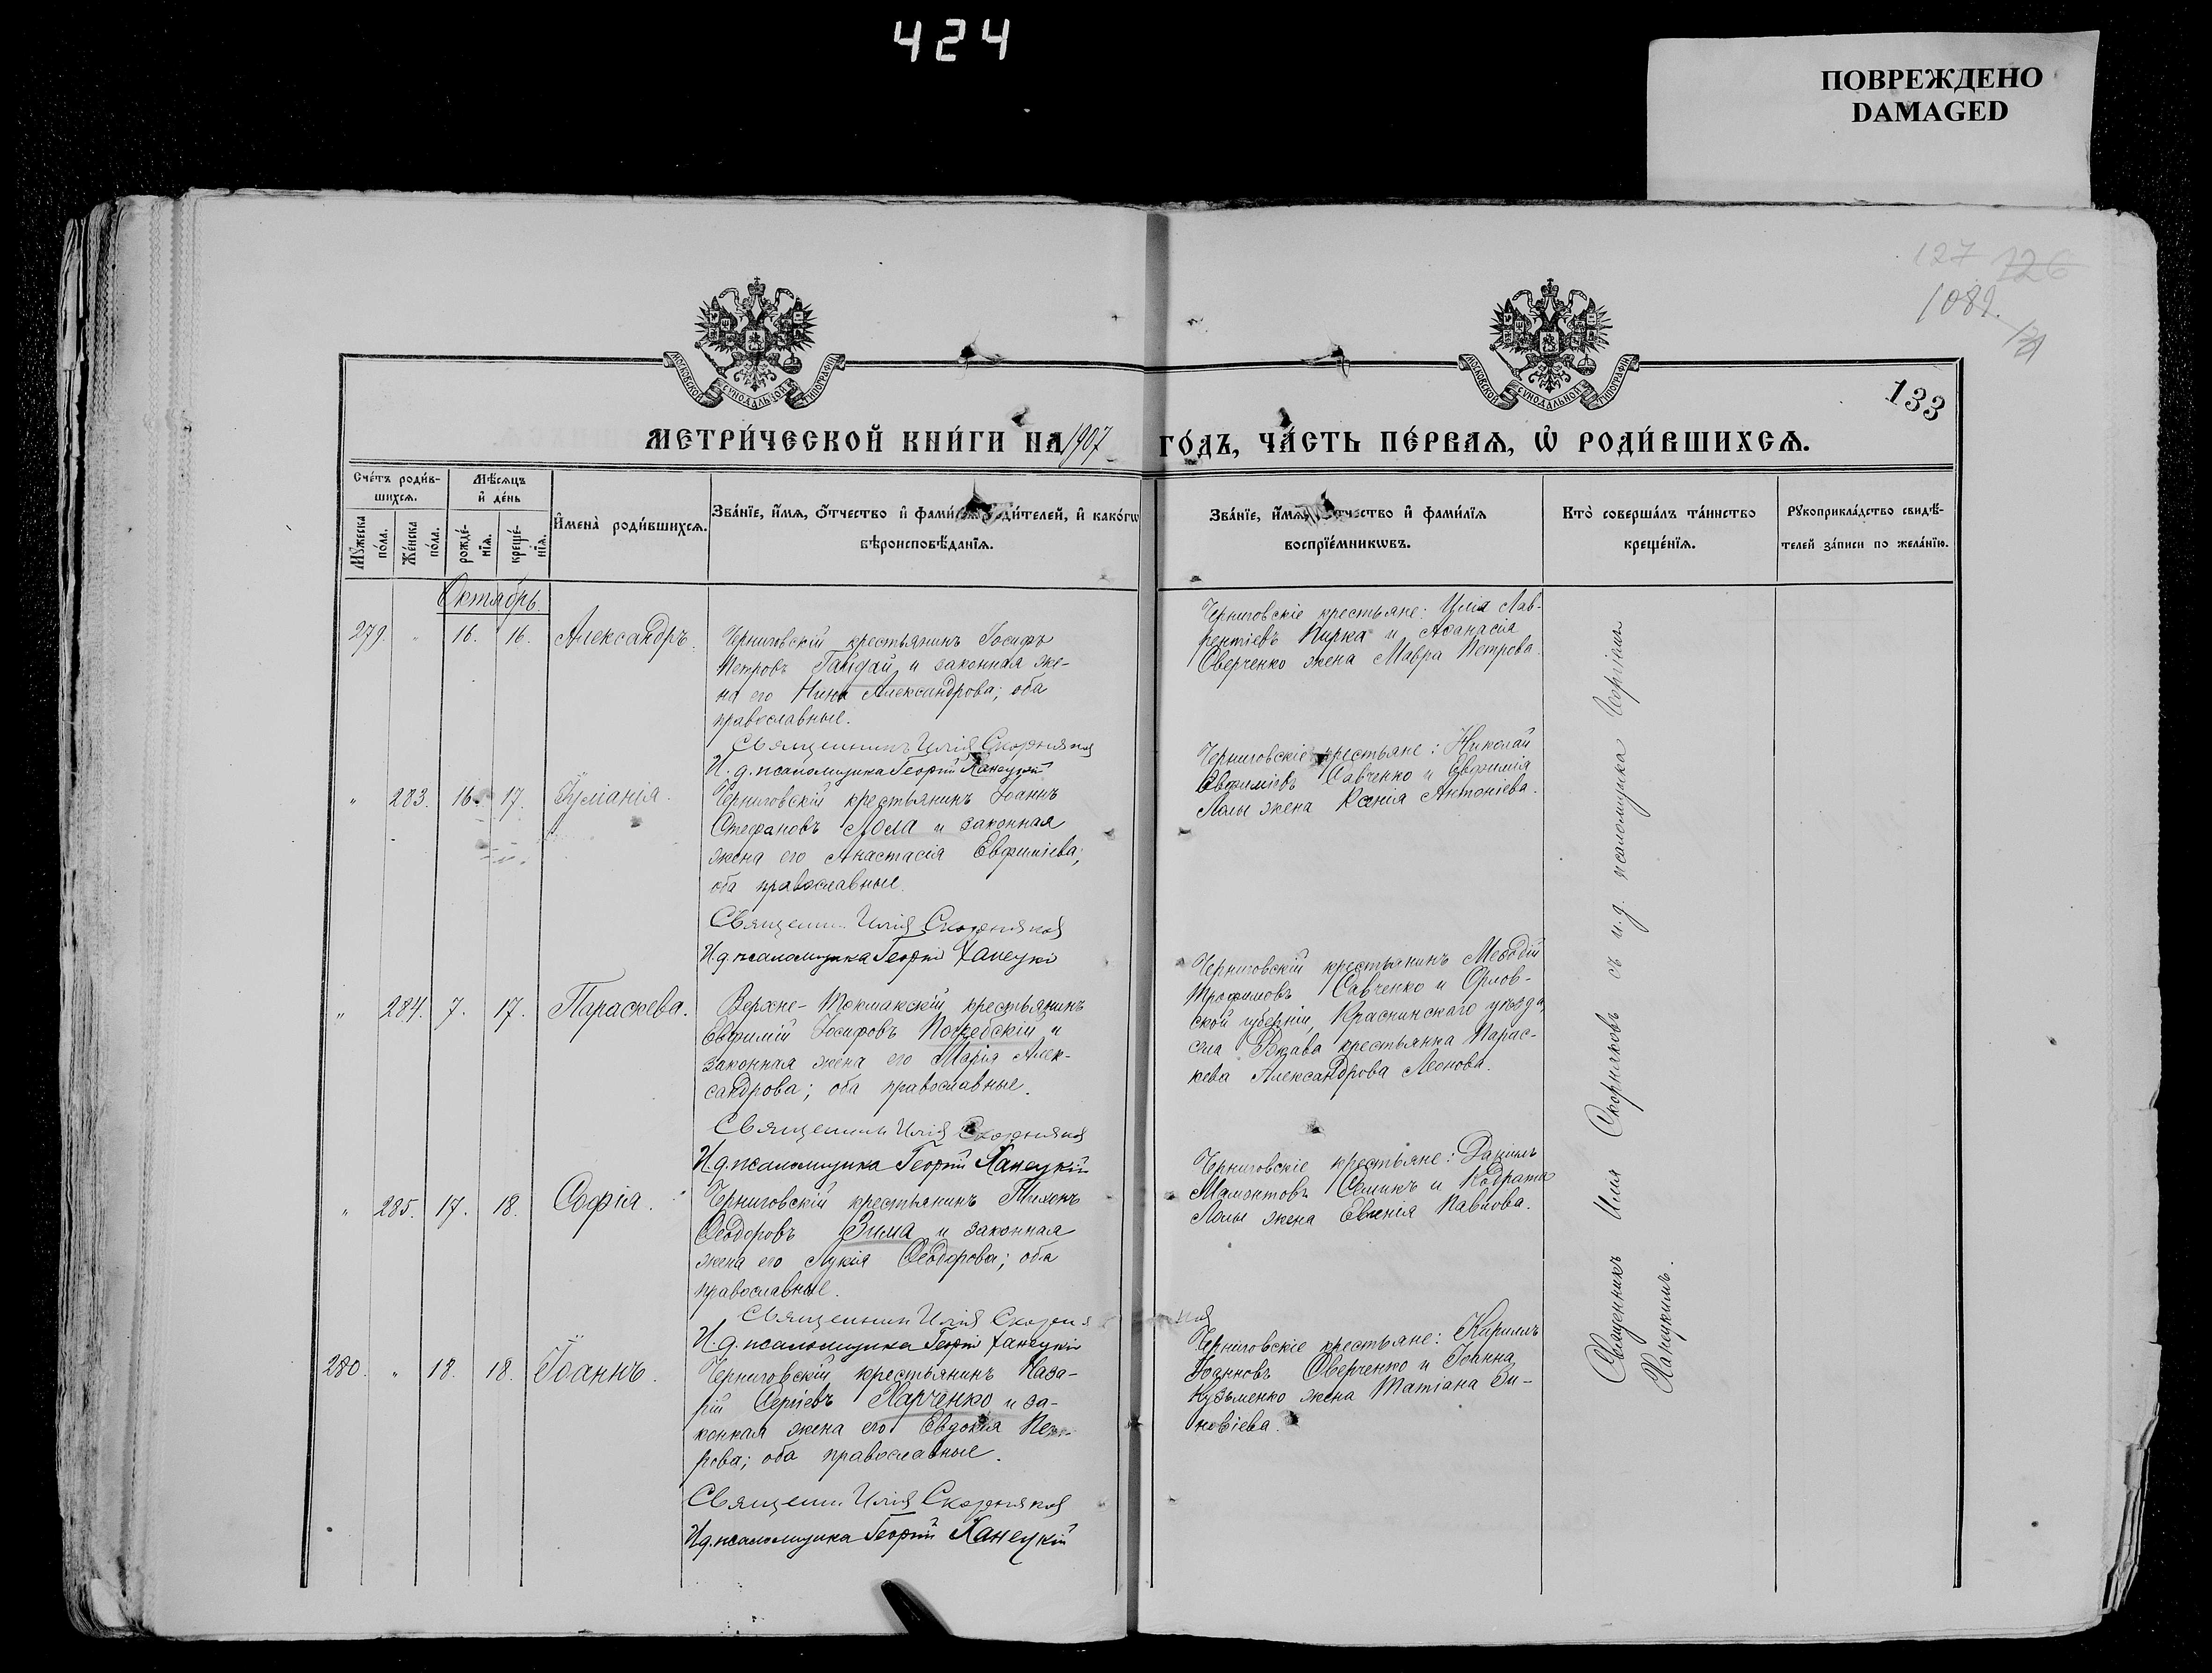 424
ПОВРЕЖДЕНО
DAMAGED
127 126
1089.
133
МОСКОВСКОЙ СУНОДАЛЬНОЙ ТИПОГРАФІИ
МОСКОВСКОЙ СУНОДАЛЬНОЙ ТИПОГРАФІИ
МЕТРИ́ЧЕСКОЙ КНИ́ГИ НА 1907 ГО́ДЪ, ЧА́СТЬ ПЕ́РВАѦ, Ѡ҆ РОДИ́ВШИХСѦ.
Сче́тъ роди́в-
шихсѧ.
Мѣ́сѧцъ
и҆ де́нь
Мꙋ́жеска
по́ла.
Же́нска
по́ла.
рожде́-
нїѧ.
креще́-
нїѧ.
И҆мена̀ роди́вшихсѧ.
Зва́нїе, и҆́мѧ, ѻ҆́тчество и҆ фами́лїѧ роди́телей, и҆ како́гѡ
вѣроисповѣ́данїѧ.
Зва́нїе, и҆́мѧ, ѻ҆́тчество и҆ фами́лїѧ
воспрїе́мникѡвъ.
Кто̀ соверша́лъ та́инство
креще́нїѧ.
Рꙋкоприкла́дство свидѣ́-
телей за́писи по жела́нїю.
Октябрь.
279. " 16. 16. Александръ.
Черниговскій крестьянинъ Іосифъ
Петровъ Гайдай и законная же-
на его Нина Александрова; оба
православные.
Священникъ Илія Скорняков
И. д. псаломщика Георгій Ханецкій
Черниговскіе крестьяне: Илія Лав-
рентіевъ Пирка и Аѳанасія
Оверченко жена Мавра Петрова.
" 283. 16. 17. Іуліанія.
Черниговскій крестьянинъ Іоаннъ
Стефановъ Лола и законная
жена его Анастасія Евфиміева;
оба православные.
Священн. Илія Скорняков
И. д. псаломщика Георгій Ханецкі
Черниговскіе крестьяне: Николай
Евфиміевъ Савченко и Евфимія
Лолы жена Ксенія Антоніева.
" 284. 7. 17. Параскева.
Верхне-Токмакскій крестьянинъ
Евфимій Іосифовъ Погребскій и
законная жена его Марія Алек-
сандрова; оба православные.
Священник Илія Скорняков
И. д. псаломщика Георгій Ханецкій
Черниговскій крестьянинъ Меѳодій
Трофимовъ Савченко и Орлов-
ской губерніи, уѣзда,
села крестьянка Парас-
кева Александрова Леонова.
" 285. 17. 18. Софія.
Черниговскій крестьянинъ Тихонъ
Ѳеодоровъ Зима и законная
жена его Лукія Ѳеодорова; оба
православные.
Священник Илія Скорня ков
И. д. псаломщика Георгі Ханецкій
Черниговскіе крестьяне: Даніилъ
Мамонтовъ Семикъ и Кодрата
Лолы жена Евгенія Павлова.
280. " 18. 18. Іоаннъ.
Черниговскій крестьянинъ Наза-
рій Сергіевъ Харченко и за-
конная жена его Евдокія Пет-
рова; оба православные.
Священн. Илія Скорняков
И д. псаломщика Георгій Ханецкій
Черниговскіе крестьяне: Кириллъ
Іоанновъ Оверченко и Іоанна
Кузьменко жена Татіана Зи-
новіева.
Священникъ Илія Скорняковъ съ и. д. псаломщика Георгіемъ
Ханецкимъ.